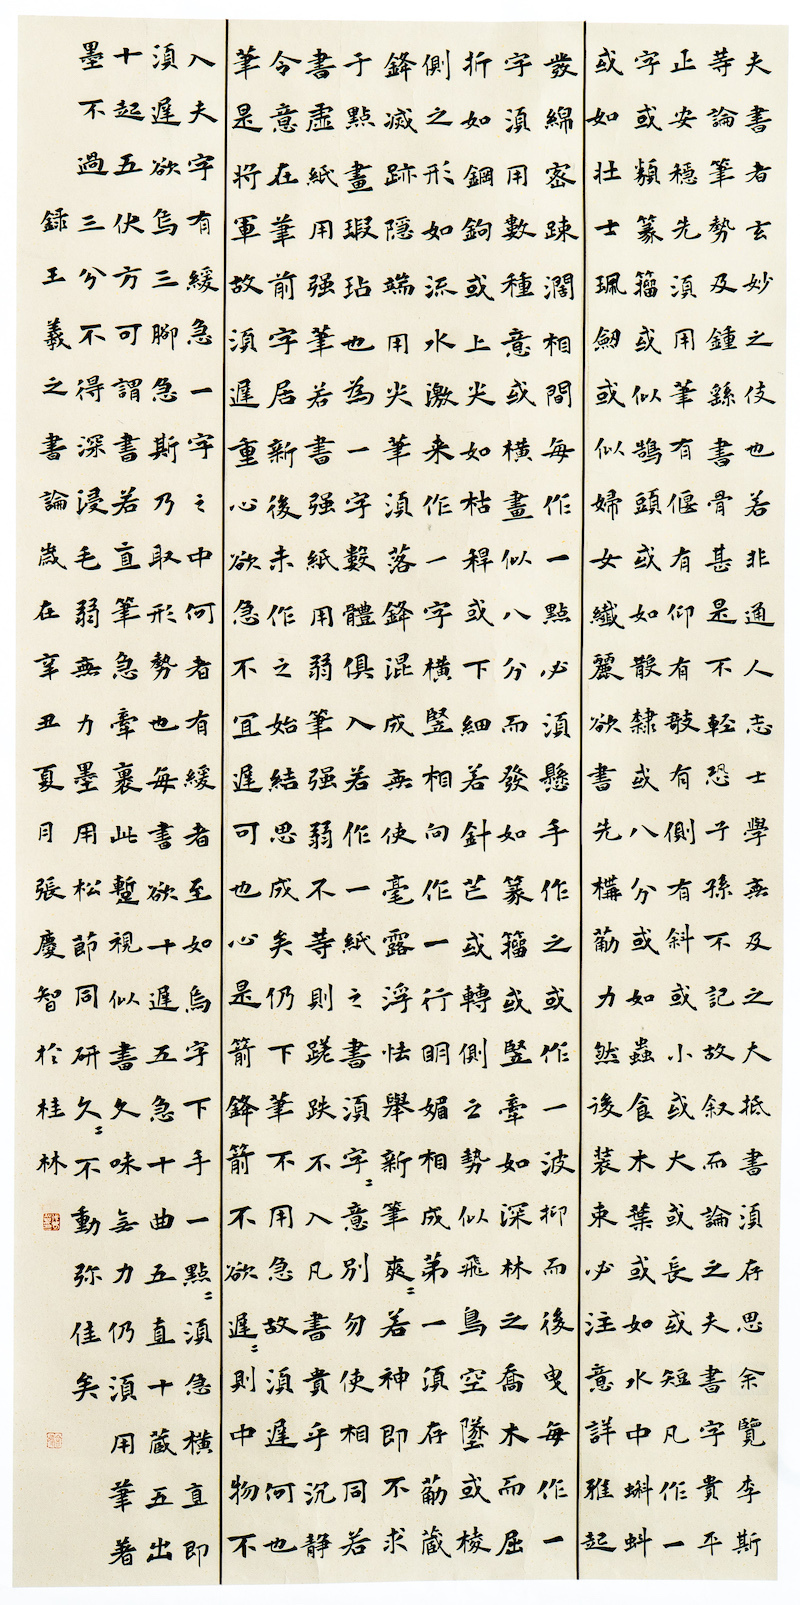 夫書者玄妙之伎也若非通人志士學無及之大抵書須存思余覽李斯
等論筆勢及鍾繇書骨甚是不輕恐子孫不記故叙而論之夫書字貴平
正安穩先須用筆有偃有仰有攲有側有斜或小或大或長或短凡作一
字或類篆籀或似鵠頭或如散隸或八分或如蟲食木葉或如水中蝌蚪
或如壯士珮劒或似婦女纖麗欲書先構葝力然後裝束必注意詳雅起
發綿密疎濶相間每作一點必須懸手作之或作一波抑而後曳每作一
字須用數種意或橫畫似八分而發如篆籀或竪牽如深林之喬木而屈
折如鋼鉤或上尖如枯稈或下細若針芒或轉側之勢似飛鳥空墜或棱
側之形如流水激来作一字橫竪相向作一行明媚相成第一須存葝蔵
鋒滅跡隱端用尖筆須落鋒混成無使毫露浮怯舉新筆爽〻若神即不求
于點畫瑕玷也為一字數體俱入若作一紙之書須字〻意別勿使相同若
書虛紙用强筆若書强紙用弱筆强弱不等則蹉跌不入凡書貴乎沉静
令意在筆前字居新後未作之始結思成矣仍下筆不用急故須遲何也
筆是将軍故須遲重心欲急不宜遲可也心是箭鋒箭不欲遲〻則中物不
入夫字有緩急一字之中何者有緩者至如烏字下手一點〻須急橫直即
須遲欲烏三腳急斯乃取形勢也每書欲十遲五急十曲五直十蔵五出
十起五伏方可謂書若直筆急牽裹此蹔視似書久味無力仍須用筆著
墨不過三分不得深浸毛弱無力墨用松節同研久〻不動弥佳矣
録王羲之書論歲在辛丑夏月張慶智於桂林